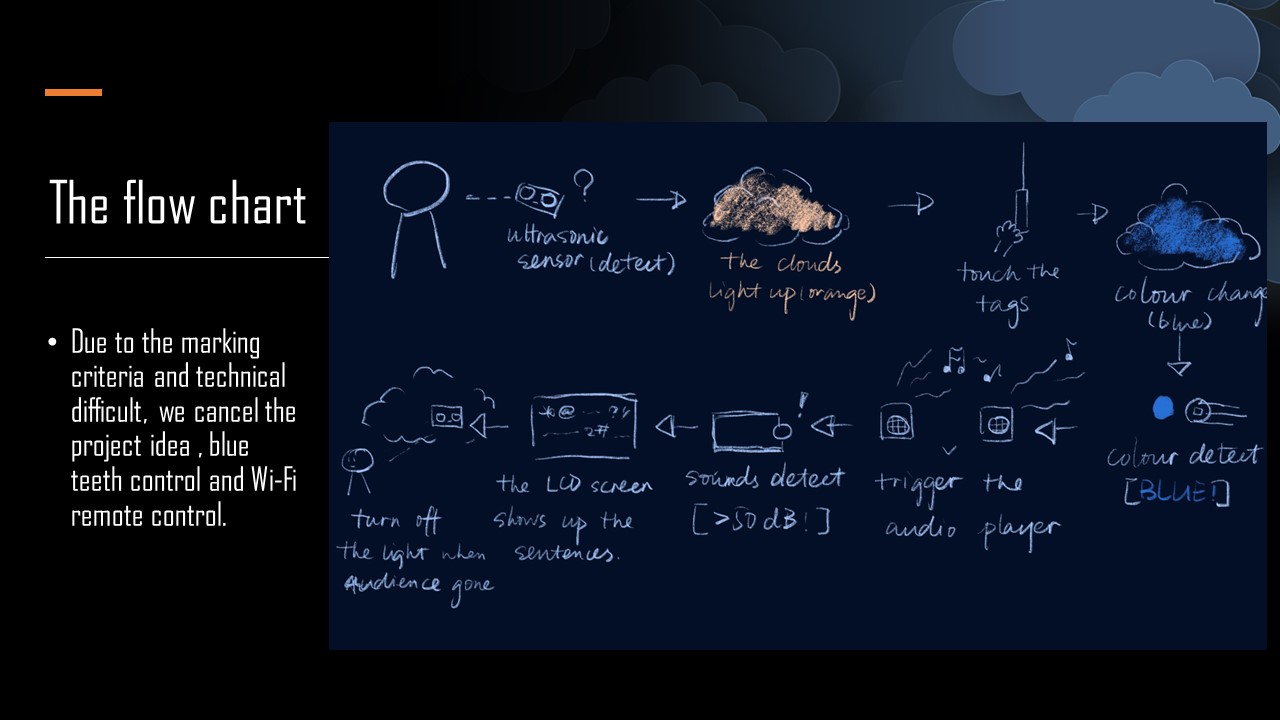 The flow chart
• Due to the marking
criteria and technical
difficult, we cancel the
project idea , blue
teeth control and Wi-Fi
remote control.
?
ultrasonic
sensor (detect)
the clouds
light up (orange)
touch the
tags
colour change
(blue)
colour detect
[BLUE!]
trigger the
audio player
!
sounds detect
[>50dB!]
the LCD screen
shows up the
sentences.
turn off
the light when
audience gone